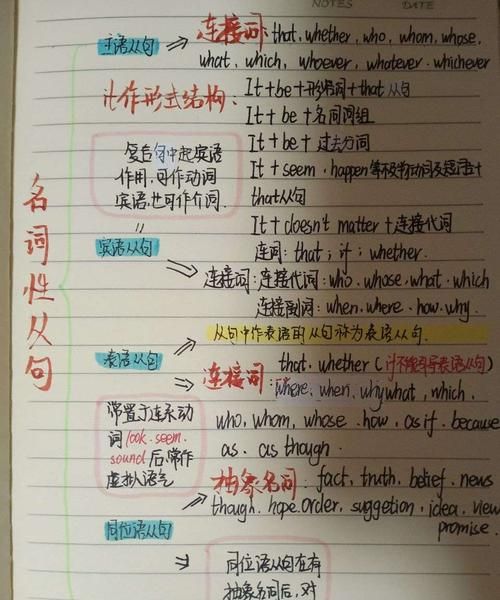 NOTES DATE
名词性从句
主语从句 ⇒ 连接词: that, whether, who, whom, whose,
what, which, whoever, whatever, whichever
it作形式结构: It + be + 形容词 + that 从句
It + be + 名词词组
It + be + 过去分词
It + seem, happen等不及物动词及短语 +
that从句
It + doesn't matter + 连接代词
复合句中起宾语
作用,可作动词
宾语,也可作介词.
宾语从句
连词: that ; if ; whether.
⇒ 连接词: 连接代词: who. whose. what. which
连接副词: when. where. how. why.
表语从句 ⇒ 从句中作表语的从句称为表语从句.
⇒ 连接词: that, whether (if不能引导表语从句)
where, when, why what, which,
who, whom, whose, how, as if, because
as, as though.
常置于连系动
词look. seem.
sound后,常作
虚拟语气
同位语从句 ⇒ 抽象名词: fact, truth, belief, news
though. hope. order, suggetion, idea, view
promise.
⇒ 同位语从句在有
抽象名词后,对